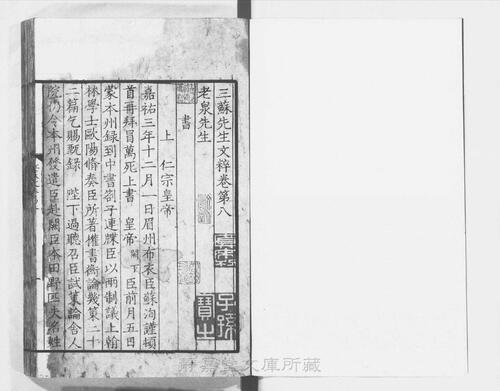 三蘇先生文粹卷第八
老泉先生
書
上 仁宗皇帝
嘉祐三年十二月一日眉州布衣臣蘇洵謹頓
首再拜冒萬死上書 皇帝闕下臣前月五日
蒙本州録到中書劄子連牒臣以兩制議上翰
林學士歐陽脩奏臣所著權書衡論幾策二十
二篇乞賜甄録 陛下過聽召臣試策論舍人
院仍令本州發遣臣赴闕臣本田野匹夫名姓
子孫
寶之
靜嘉堂文庫所藏